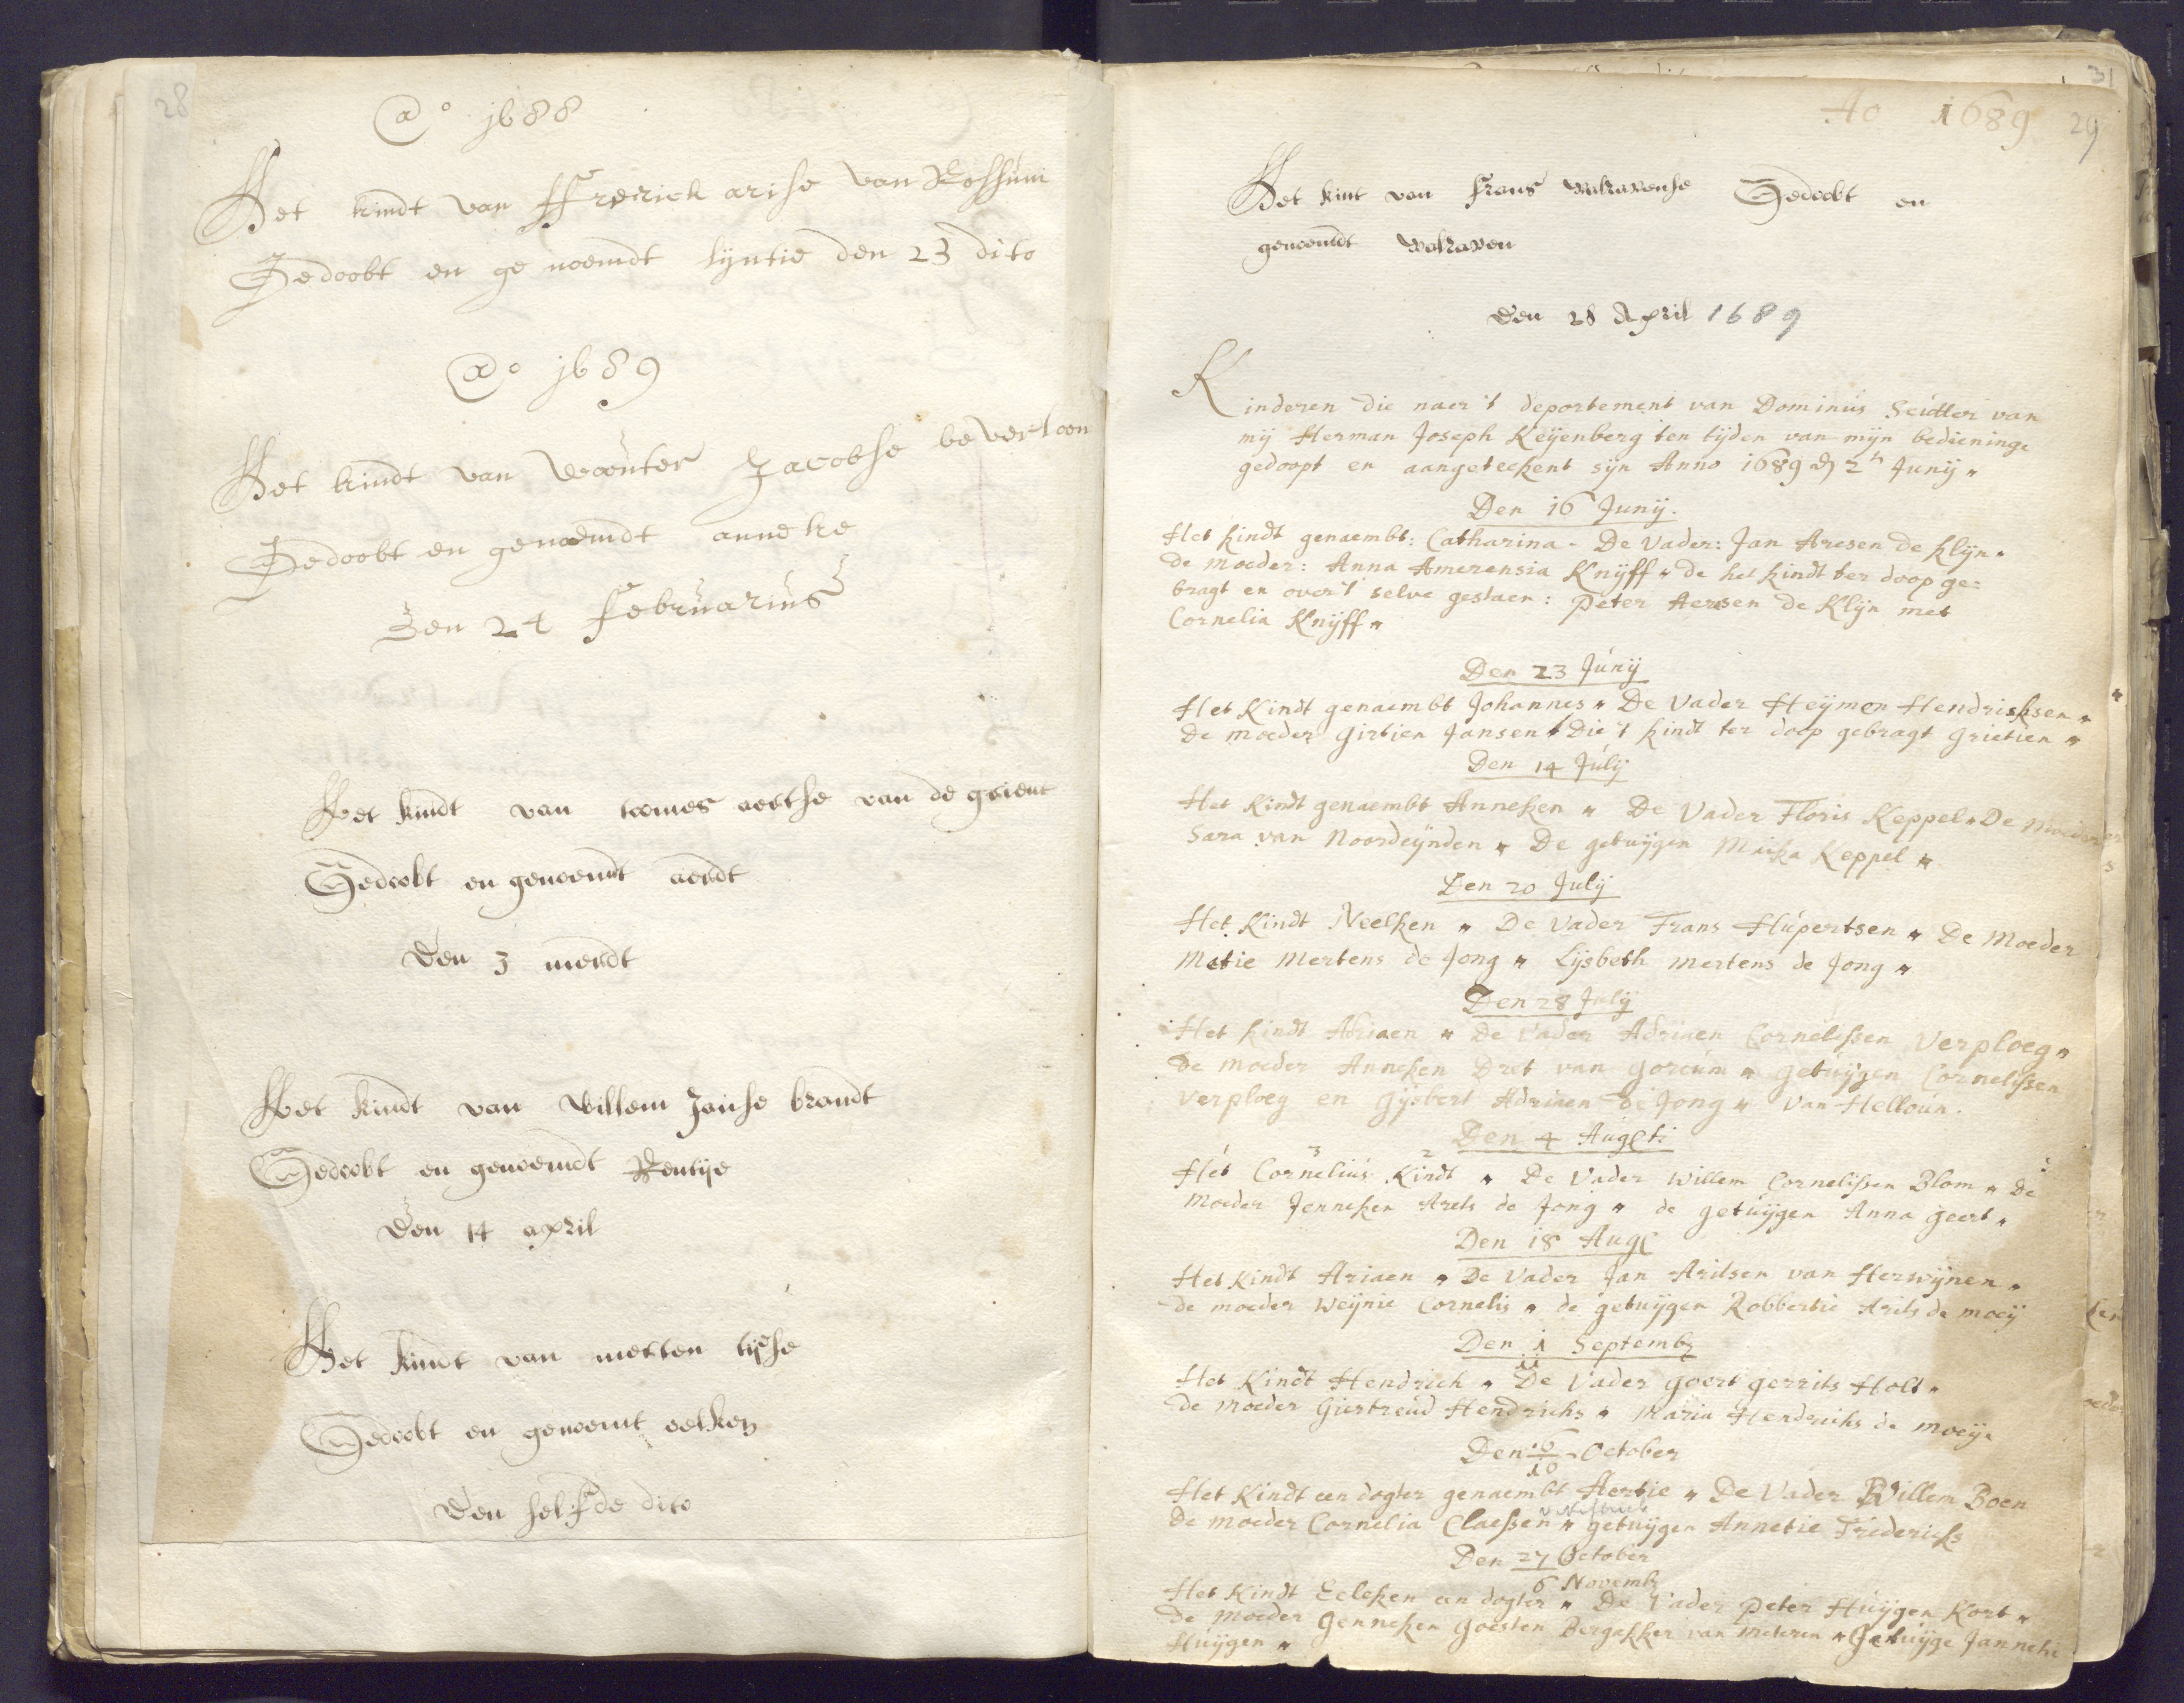 28
ao 1688
Het kindt van Frerick arise van Rossum
Gedoobt en ge noemdt lijntie den 23 dito
ao 1689
Het kindt van Wouter Jacobse beverloon
Gedoobt en genoemdt anneke
Den 24 Februarius
Het kindt van toomes aertse van de grient
Gedoobt en genoemt aerdt
Den 3 merdt
Het kindt van Willem Janse brandt
Gedoobt en genoemdt
Den 14 april
Het kindt van merten tijse
Gedoobt en genoemt eelken
Den selfde dito
31
Ao 1689 29
Het kint van frans walravense Gedoobt en
genoemdt walraven
Den 28 April 1689
Kinderen die naer 't deportement van Dominus Seidter van
mij Herman Joseph Keyenberg ten tijden van mijn bedieninge
gedoopt en aangeteekent sijn Anno 1689 d 2n Junij
Den 16 Junij.
Het kindt genaembt: Catharina. De Vader: Jan Aresen de klijn.
de moeder: Anna Amerensia Knijff de het kindt ter doop ge=
bragt en over't selve gestaen: Peter Aersen de Klijn met
Cornelia Knijff
Den 23 Junij
Het Kindt genaembt Johannes De Vader Heijmen Hendricksen
de moeder Girtien Jansen Die 't kindt ter doop gebragt Grietien
Den 14 Julij
Het Kindt genaembt Anneken De Vader Floris Keppel De Moeder
Sara van Noordeijnden De getuijgen Maika Keppel
Den 20 Julij
Het Kindt Neelken De Vader Frans Hupertsen De Moeder
Metie Mertens de Jong Lijsbeth Mertens de Jong
Den 28 Julij
Het kindt Adriaen De Vader Adriaen Cornelissen Verploeg
de moeder Anneken Dret van Gorcum getuijgen Cornelissen
Verploeg en Gijsbert Adriaen de Jong van Helloun.
Den 4 Augsti
3 2
Het Cornelius Kindt De Vader Willem Cornelissen Blom De
moeder Jenneken Arets de Jong de getuijgen Anna Geert
Den 18 Aug
Het Kindt Ariaen De Vader Jan Aritsen van Herwijnen
de moeder Weijnie Cornelis de getuijgen Robbertie Arits de moeij
Den 1 Septemb
11
Het Kindt Hendrick De Vader Goert Gerrits Holt
de moeder Giertreud Hendrichs Maria Hendrichs de moeije
Den 6 October
16
Het Kindt een dogter genaembt Aertie De Vader Willem Boen
De moeder Cornelia Claessen getuijgen Annetie Friedericks
Den 27 October
6 Novemb
Het Kindt Eelken een dogter De Vader Peter Huijgen Kort
De Moeder Genneken Goosten Bergakker van Meteren Getuijge Janneke
Huijgen